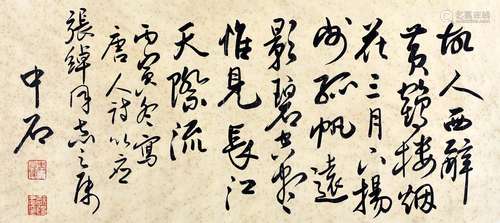 故人西辭
黄鶴樓烟
花三月下揚
州孤帆遠
影碧空盡
惟見長江
天際流
丙寅冬寫
唐人詩以應
張綽同志之属
中石